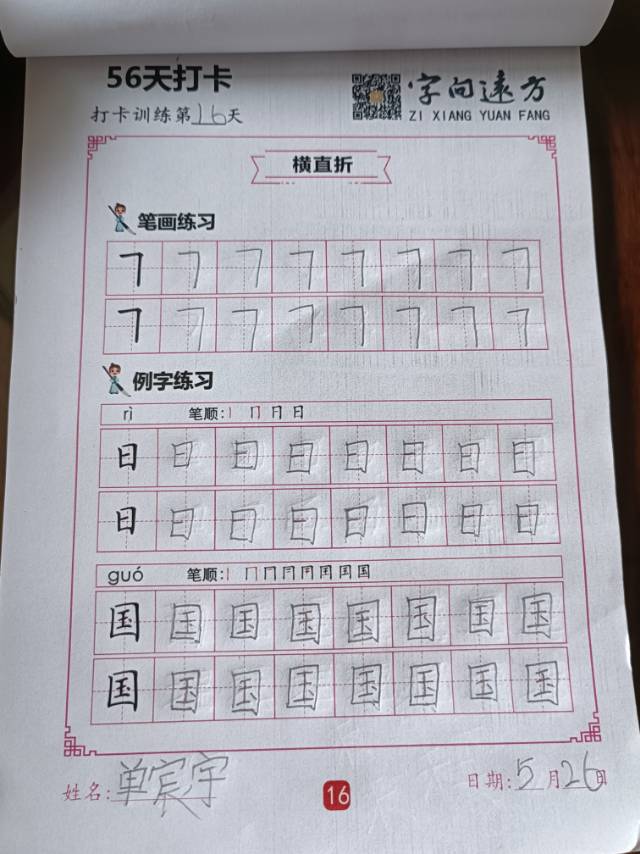 56天打卡
字向遠方
打卡训练第16天
ZI XIANG YUAN FANG
横直折
笔画练习
𠃍 𠃍 𠃍 𠃍 𠃍 𠃍 𠃍 𠃍
𠃍 𠃍 𠃍 𠃍 𠃍 𠃍 𠃍 𠃍
例字练习
rì 笔顺: 丨 冂 日 日
日 日 日 日 日 日 日 日
日 日 日 日 日 日 日 日
guó 笔顺: 丨 冂 冂 冃 囯 囯 国 国
国 国 国 国 国 国 国 国
国 国 国 国 国 国 国 国
姓名: 单宸宇
16
日期: 5月26日